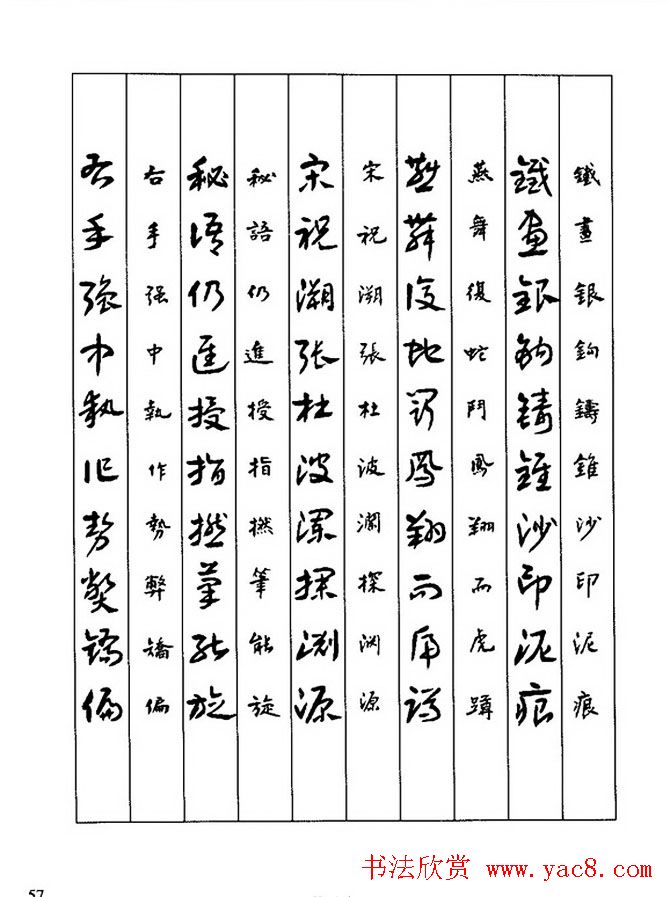 鐵畫銀鉤鑄錐沙印泥痕
鐵畫銀鉤鑄錐沙印泥痕
燕舞復蛇鬥鳳翔而虎蹲
燕舞復蛇鬥鳳翔而虎蹲
宋祝溯張杜波瀾探淵源
宋祝溯張杜波瀾探渊源
秘語仍進授指撚筆能旋
秘語仍進授指撚筆能旋
右手强中執作勢弊矯偏
右手强中執作勢弊矯偏
57
书法欣赏 www.yac8.com